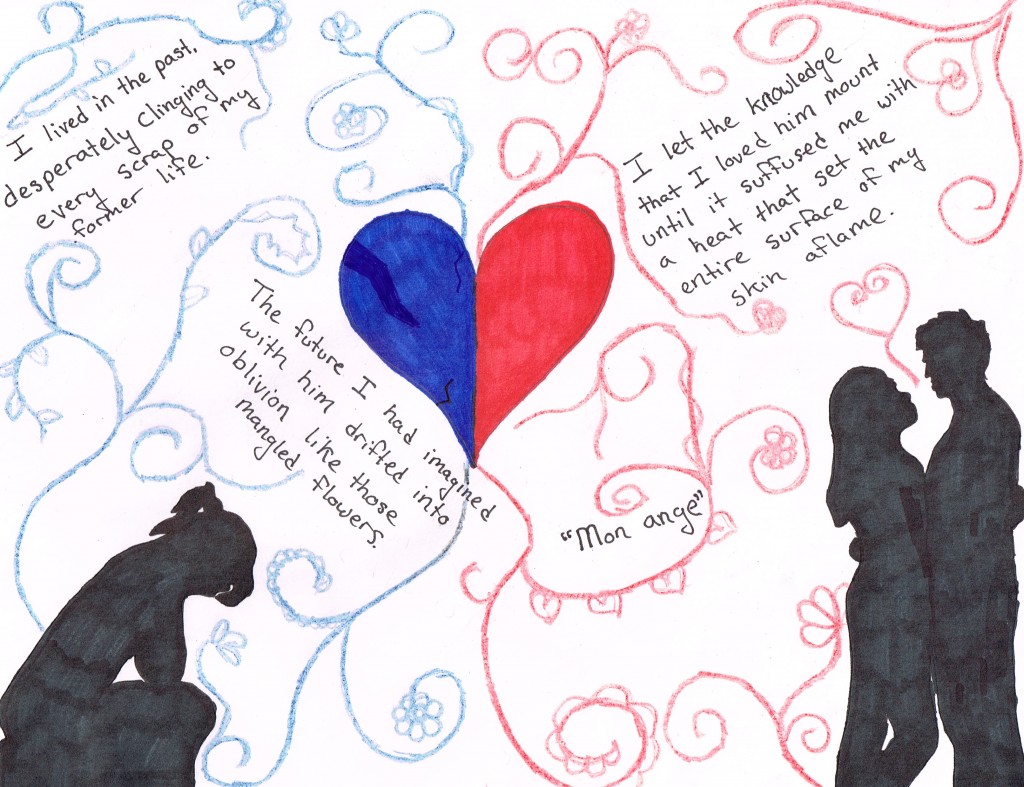 I lived in the past,
desperately clinging to
every scrap of my
former life.
The future I had imagined
with him drifted into
oblivion like those
mangled flowers.
I let the knowledge
that I loved him mount
until it suffused me with
a heat that set the
entire surface of my
skin aflame.
"Mon ange"